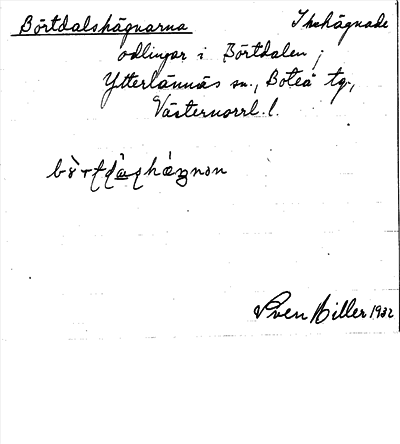 Börtdalshägnarna Inhägnade
odlingar i Börtdalen,
Ytterlännäs sn., Boteå tg.,
Västernorrl. l.
Sven Hiller 1932